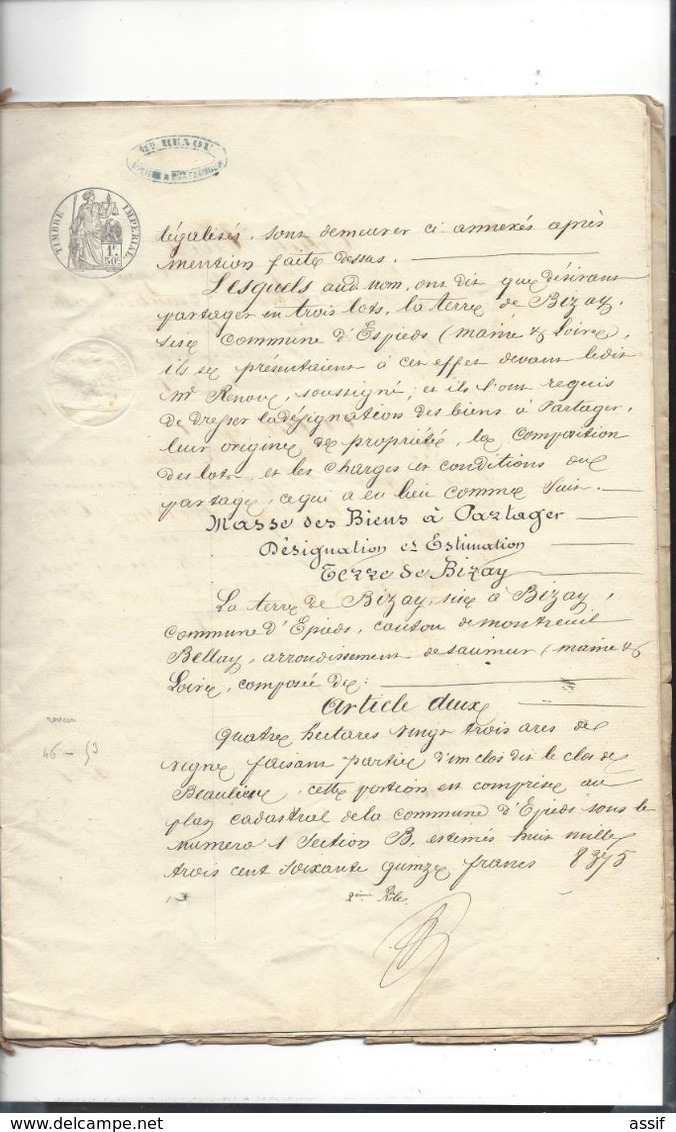 Me RENOU
TIMBRE IMPÉRIAL
1F.
50c.
légalisés, sont demeurés ci annexés après
mention faite dessus.
Lesquels aud. nom, ont dit que désirant
partager en trois lots, la terre de Bizay,
sise commune d'Espieds (maine & Loire,
ils se présentaient à cet effet devant ledit
Me Renou, soussigné; et ils l'ont requis
de dresser la désignation des biens à Partager,
leur origine de propriété, la composition
des lots, et les charges et conditions du
partage, ce qui a eu lieu comme suit.
Masse des Biens à Partager
Désignation et Estimation
Terre de Bizay
La terre de Bizay, sise à Bizay,
commune d'Epieds, canton de montreuil
Bellay, arrondissement de saumur (maine &
Loire, composée de:
Article deux
Quatre hectares vingt trois ares de
vigne faisant partie d'un clos dit le clos de
Beaulieu, cette portion est comprise au
plan cadastral de la commune d'Epieds sous le
numero 1 Section B, estimés huit mille
trois cent soixante quinze francs 8375
46 - 53
2ème Rôle.
assif